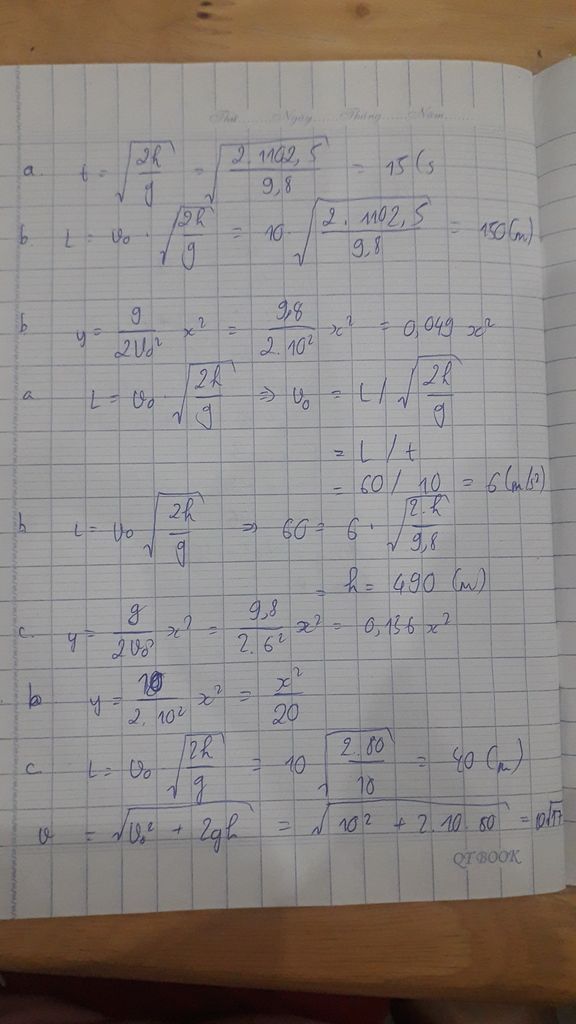 Thứ.........Ngày.........Tháng.........Năm.........
a. t = √(2h/g) = √(2.1102,5/9,8) = 15 (s
b. L = v₀ . √(2h/g) = 10. √(2. 1102,5/9,8) = 150 (m)
b y = g/2v₀² x² = 9,8/2.10² x² = 0,049 x²
a L = v₀ . √(2h/g) ⇒ v₀ = L / √(2h/g)
= L / t
= 60 / 10 = 6 (m/s²)
b L = v₀ √(2h/g) ⇒ 60 = 6 . √(2.h/9,8)
= h = 490 (m)
c. y = g/2v₀² x² = 9,8/2.6² x² = 0,136 x²
b y = 10/2.10² x² = x²/20
c L = v₀ √(2h/g) = 10 √(2.80/10) = 40 (m)
v = √(v₀² + 2gh) = √(10² + 2.10.80) = 10√17
QTBOOK